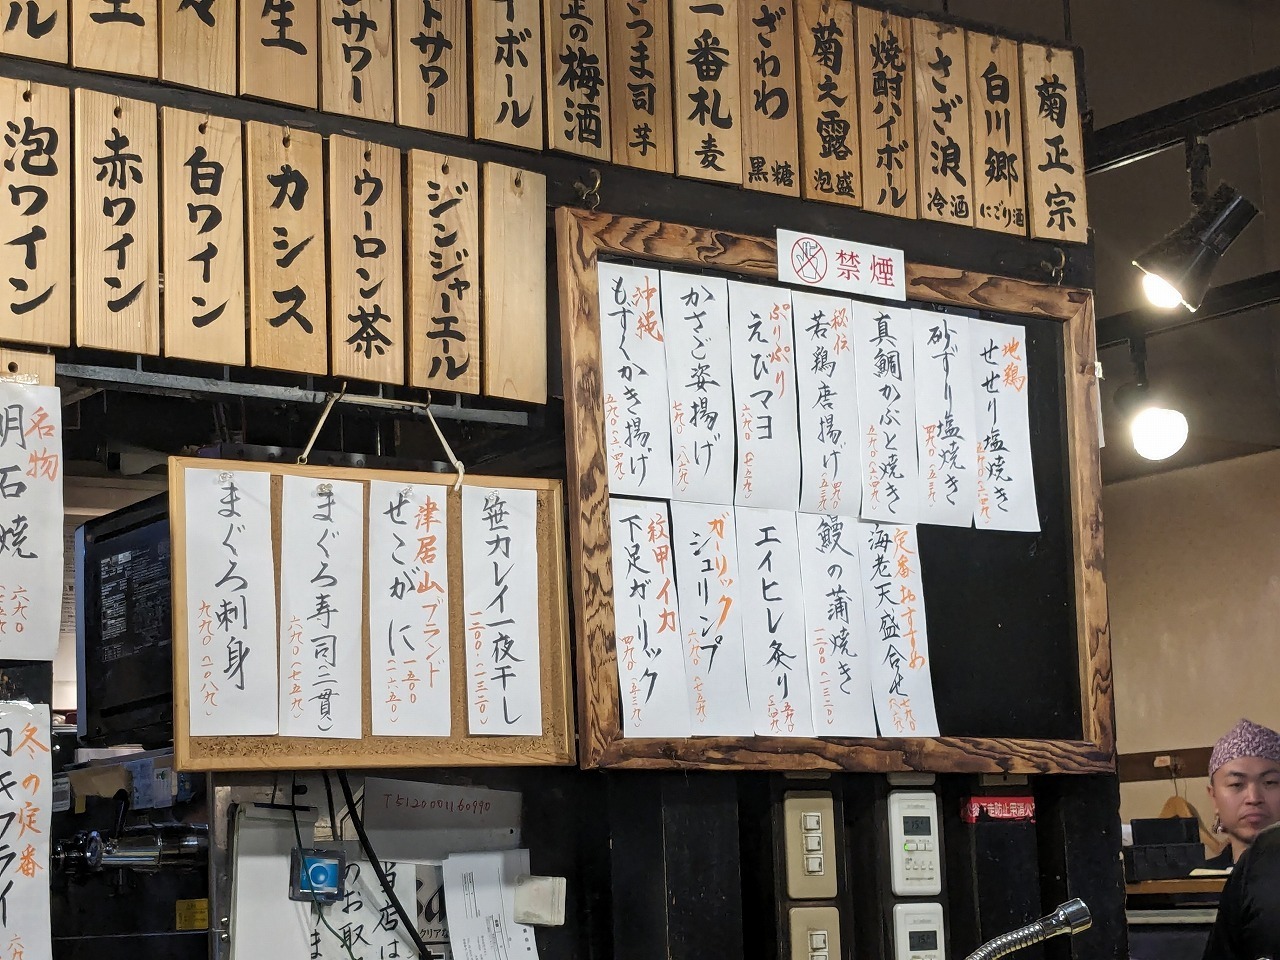 菊正宗
白川郷 にごり酒
さざ浪 冷酒
焼酎ハイボール
菊之露 泡盛
ざわわ 黒糖
一番札 麦
さつま司 芋
の梅酒
ボール
トサワー
サワー
生
ジンジャーエール
ウーロン茶
カシス
白ワイン
赤ワイン
泡ワイン
禁煙
地鶏
せせり塩焼き
砂ずり塩焼き
四九〇(五三九)
真鯛かぶと焼き
秘伝
若鶏唐揚げ
四九〇(五三九)
ぷりぷり
えびマヨ
かさご姿揚げ
沖縄
もずくかき揚げ
定番おすすめ
海老天盛合せ
鰻の蒲焼き
一二〇〇(一三二〇)
エイヒレ炙り
ガーリック
シュリンプ
六九〇(七五九)
紋甲イカ
下足ガーリック
四九〇(五三九)
笹カレイ一夜干し
一二〇〇(一三二〇)
津居山ブランド
せこがに
一五〇〇(一六五〇)
まぐろ寿司(二貫)
六九〇(七五九)
まぐろ刺身
九九〇(一〇八九)
名物
明石焼
六九〇
(七五九)
冬の定番
カキフライ
T5120001160990
当店は
のお取